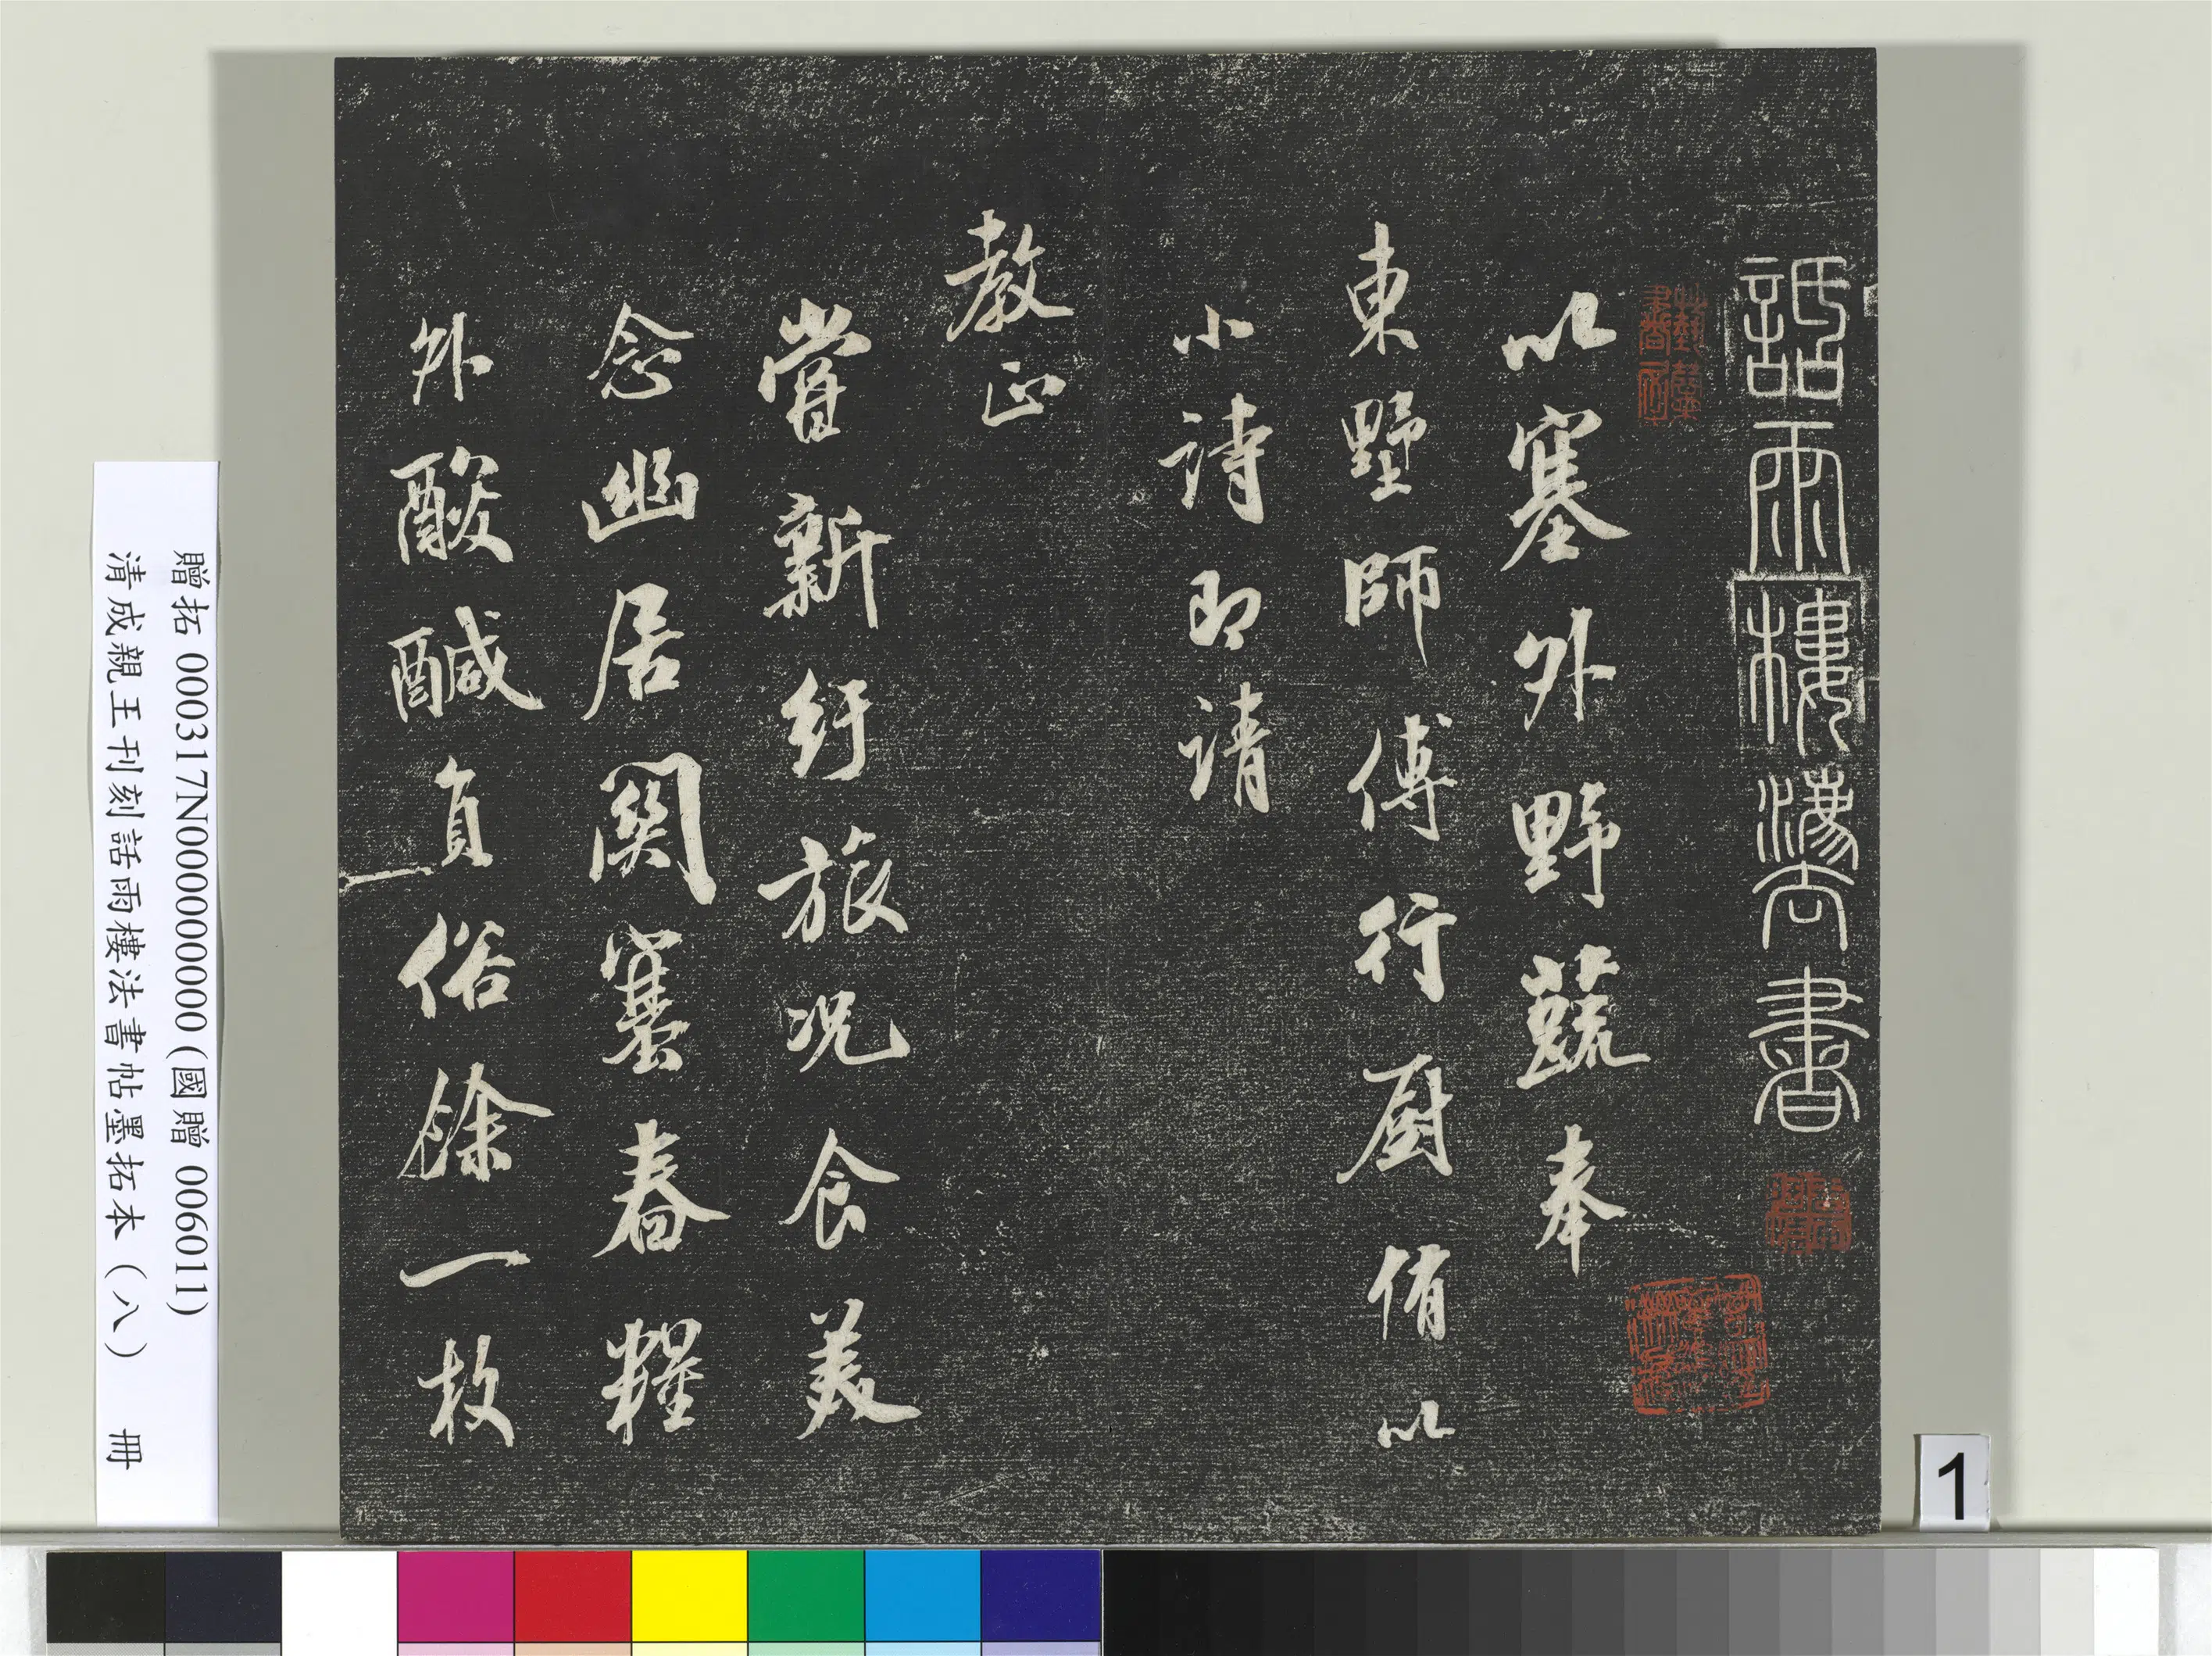 話雨樓法書
以塞外野蔬奉
東墅師傅行厨侑以
小詩即請
教正
嘗新紆旅况食美
念幽居關塞春糧
外酸鹹負俗餘一枚
贈拓 000317N000000000 (國贈 006011)
清成親王刊刻話雨樓法書帖墨拓本（八） 冊
1